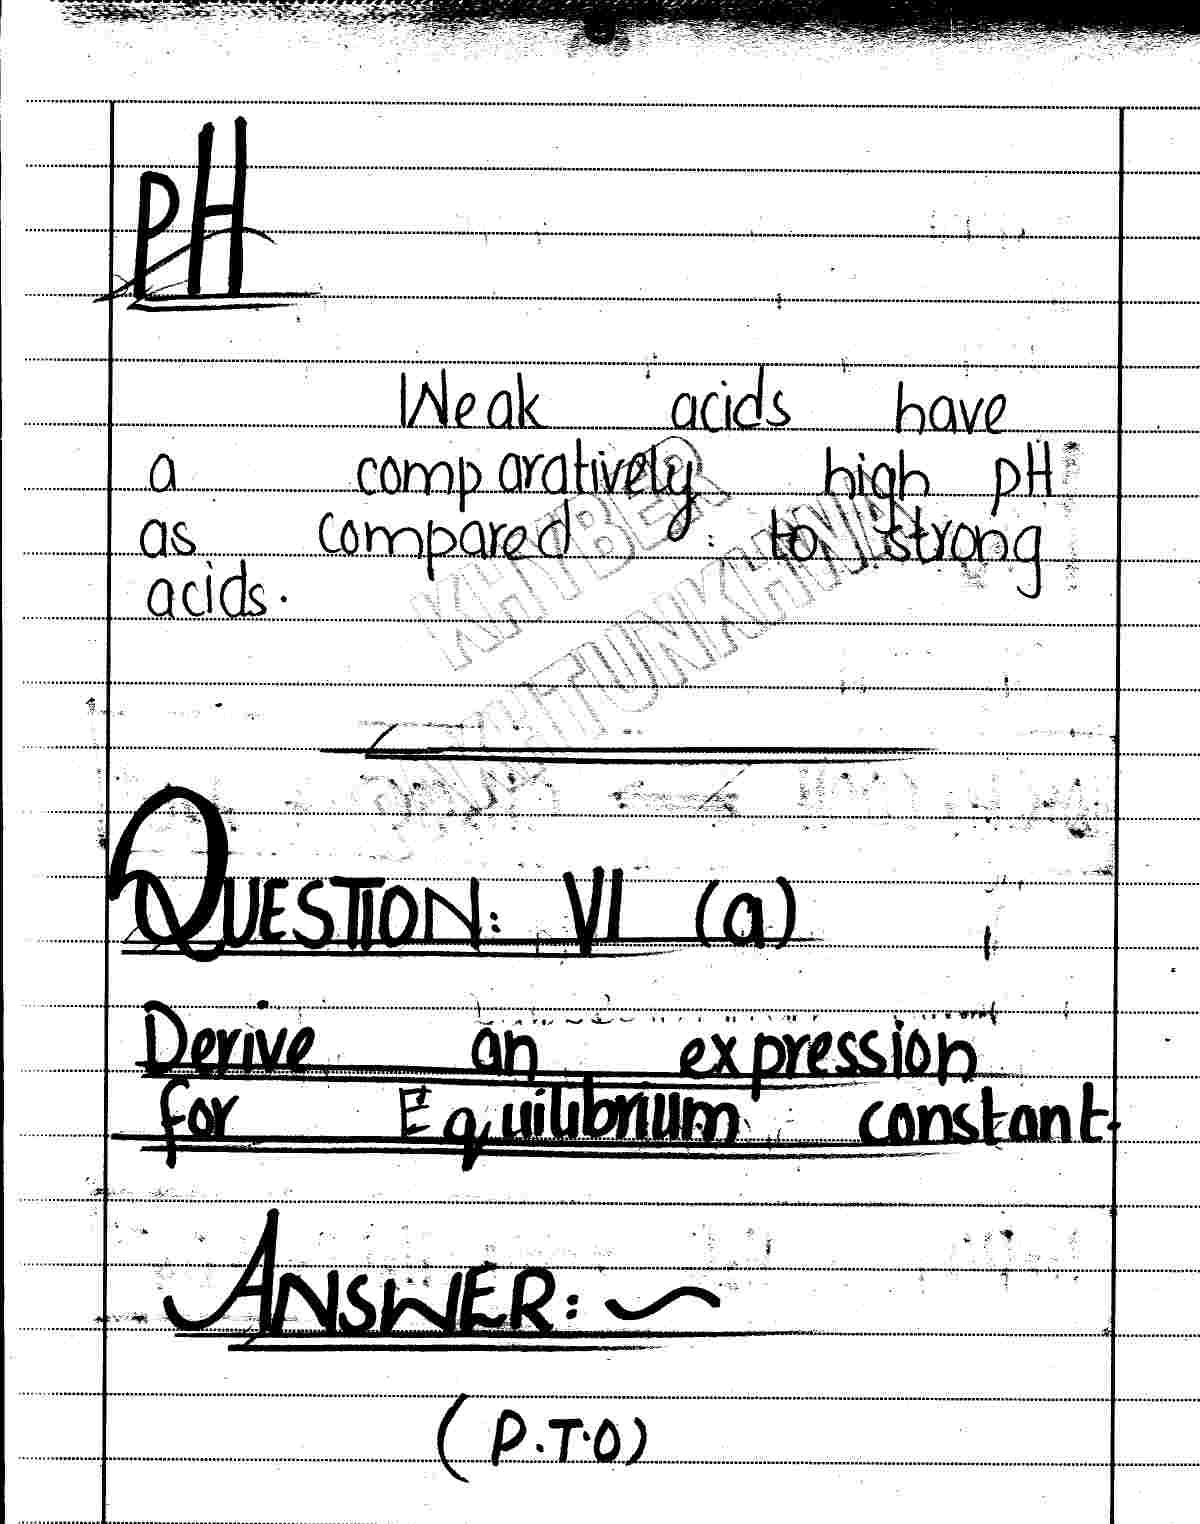 pH
Weak acids have
a comparatively high pH
as compared to strong
acids.
KHYBER
PAKHTUNKHWA
QUESTION: VI (a)
Derive an expression
for Equilibrium constant.
ANSWER:~
(P.T.O)